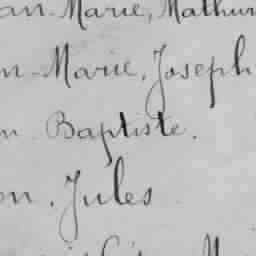 an-Marie, Mathur
n-Marie, Joseph
n Baptiste.
on, Jules